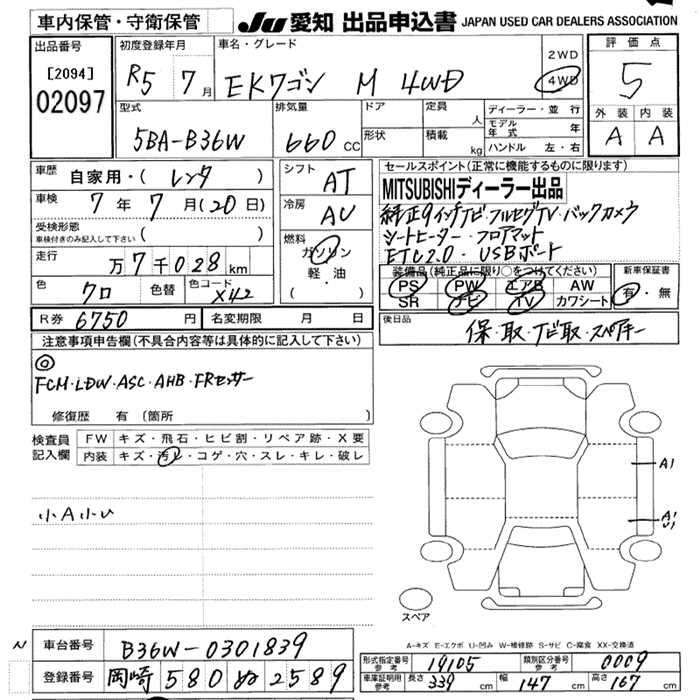 車内保管・守衛保管
JU 愛知 出品申込書 JAPAN USED CAR DEALERS ASSOCIATION
出品番号
[2094]
02097
初度登録年月
R5 7月
車名・グレード
EKワゴン M 4WD
2WD
4WD
評価点
5
外装 内装
A A
型式
5BA-B36W
排気量
660 CC
ドア
形状
定員 人
積載 kg
ディーラー・並行
モデル年式 年
ハンドル 左・右
車歴
自家用・( レンタ )
車検
7年7月(20日)
受検形態
車検付きのみ記入して下さい ( )
走行
万7千028km
色
クロ
色替
色コード
X42
シフト
AT
冷房
AU
燃料
ガソリン
軽・油
( )
セールスポイント(正常に機能するものに限ります)
MITSUBISHIディーラー出品
純正9インチナビ・フルセグTV・バックカメラ
シートヒーター・フロアマット
ETC2.0・USBポート
装備品(純正品に限り○をつけてください)
PS PW エアB AW
SR ナビ TV カワシート
新車保証書
有・無
R券 6750円
名変期限 月 日
後日品
保・取・ナビ取・スペアキー
注意事項申告欄(不具合内容等は具体的に記入して下さい)
◎
FCM・LDW・ASC・AHB・FRセンサー
修復歴 有 〔箇所
検査員記入欄
FW キズ・飛石・ヒビ割・リペア跡・X要
内装 キズ・汚レ・コゲ・穴・スレ・キレ・破レ
小A小U
A1
A1
U1
スペア
A-キズ E-エクボ U-凹み W-補修跡 S-サビ C-腐食 XX-交換済
N
車台番号 B36W-0301839
登録番号 岡崎 580 ぬ 2589
形式指定番号 参考 19105
類別区分番号 参考 0009
車庫証明用 参考 長さ 339 cm 幅 147 cm 高さ 167 cm